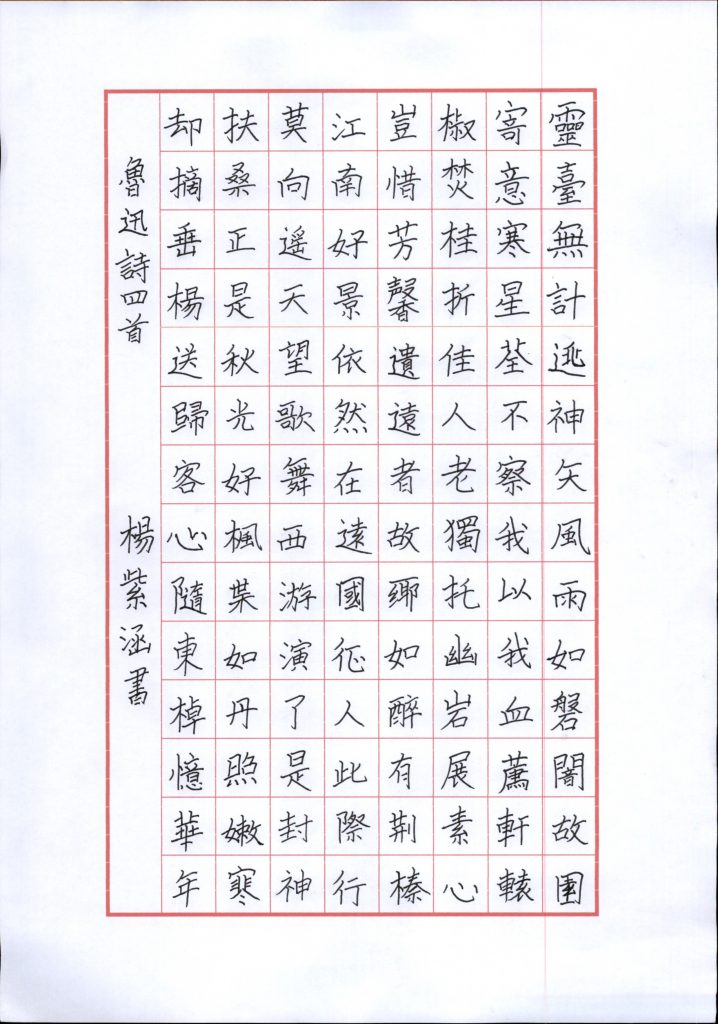 靈臺無計逃神矢風雨如磐闇故園
寄意寒星荃不察我以我血薦軒轅
椒焚桂折佳人老獨托幽岩展素心
豈惜芳馨遺遠者故鄉如醉有荆榛
江南好景依然在遠國征人此際行
莫向遥天望歌舞西游演了是封神
扶桑正是秋光好楓葉如丹照嫩寒
却摘垂楊送歸客心隨東棹憶華年
魯迅詩四首 楊紫涵書